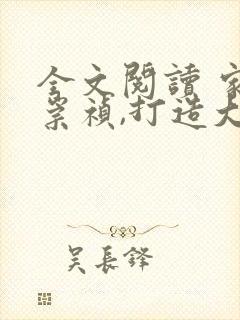 全文閱讀 家
崇禎,打造大
吴長鋒